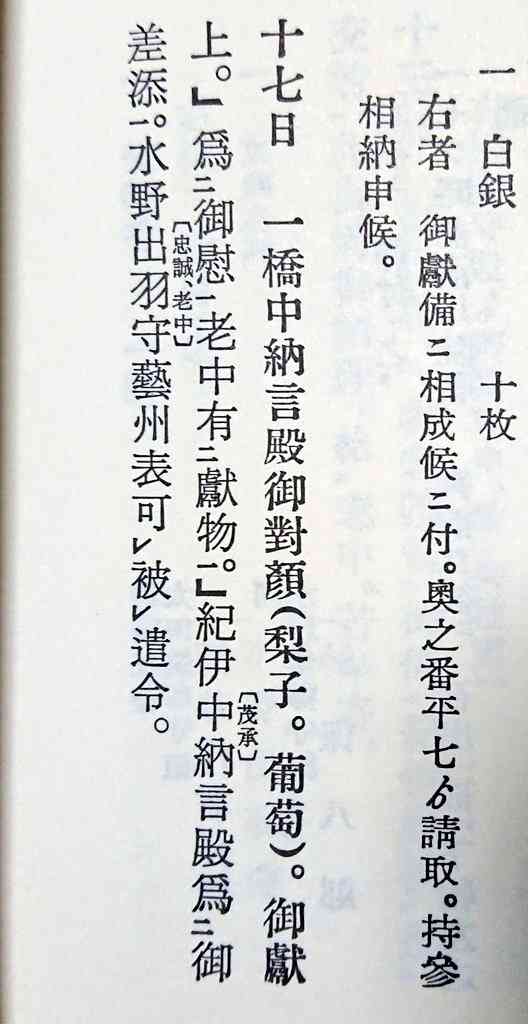 一　白銀　　　　十枚
右者　御獻備ニ相成候ニ付。奧之番平七ゟ請取。持參
相納申候。
十七日　一橋中納言殿御對顏（梨子。葡萄）。御獻
上。」爲ニ御慰一老中有ニ獻物一。」紀伊中納言殿爲ニ御
〔茂承〕
差添一。水野出羽守藝州表可レ被レ遣令。
〔忠誠、老中〕